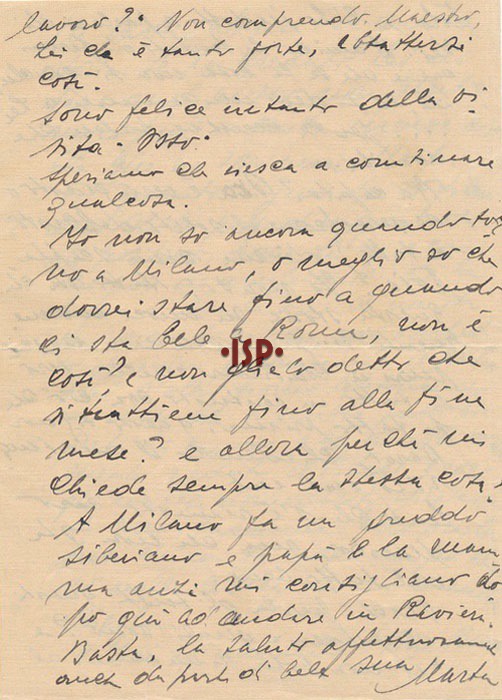 lavoro?" Non comprendo. Maestro,
Lei che è tanto forte, abbattersi
così.
Sono felice intanto della vi-
sita - Osso -
Speriamo che riesca a combinare
qualcosa.
Io non so ancora quando tor
no a Milano, o meglio so che
dovrei stare fino a quando
ci sta Bebe a Roma, non è
così? e non glielo detto che
si trattiene fino alla fine
mese? e allora perchè mi
chiede sempre la stessa cosa?
A Milano fa un freddo
siberiano e papà e la mam
ma anzi mi consigliano do
po qui ad andare in Riviera.
Basta, la saluto affettuosamente
anche da parte di Bebe sua Marta
·ISP·